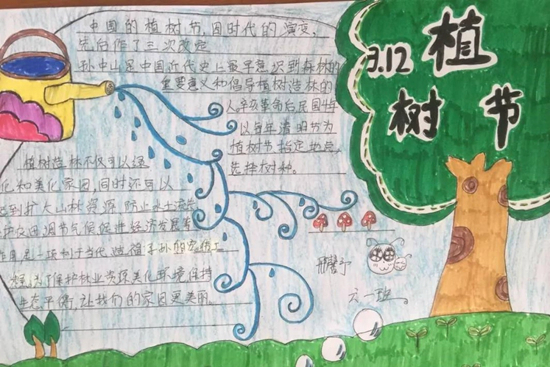 中国的植树节,因时代的演变,
先后作了三次改变
孙中山是中国近代史上最早意识到森林的
重要意义和倡导植树造林的
人辛亥革命后民国
以每年清明节为
植树节指定地点
选择树种。
植树造林不仅可以绿
化和美化家园,同时还可以
起到扩大山林资源、防止水土流失
调节气候促进经济发展等
一项利于当代,造福子孙的
为了保护林业资源美化环境保持
生态平衡,让我们的家园更美丽。
3.12
植
树节
六一班